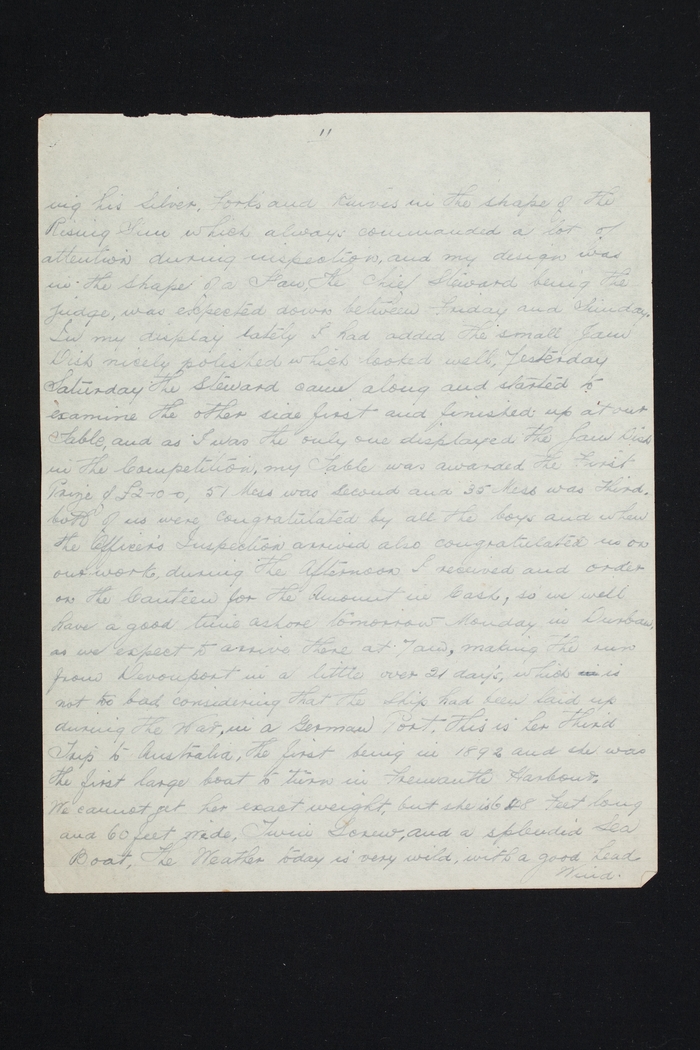 11
ing his Silver, Forks and Knives in the shape of the
Rising Sun which always commanded a lot of
attention during inspection, and my design was
in the shape of a Fan, the Chief Steward being the
judge, was expected down between Friday and Sunday.
In my display lately I had added the small Jam
Dish nicely polished which looked well, Yesterday
Saturday the Steward came along and started to
examine the other side first and finished up at our
Table, and as I was the only one displayed the Jam Dish
in the Competition, my Table was awarded the First
Prize of £2-0-0, 51 Mess was Second and 35 Mess was third.
both of us were congratulated by all the boys and when
the Officers Inspection arrived also congratulated us on
our work, during the Afternoon I received and order
on the Canteen for the Amount in Cash, so we will
have a good time ashore tomorrow Monday in Durban,
as we expect to arrive there at 7am, making the run
from Devonport in a little over 21 days, which is
not to bad considering that the Ship had been laid up
during the War, in a German Port. this is her third
Trip to Australia, the first being in 1892 and she was
the first large boat to turn in Fremantle Harbour.
We cannot get her exact weight, but she is 608 feet long
and 60 feet wide, Twin Screw, and a splendid Sea
Boat, The Weather today is very wild, with a good head
Wind.